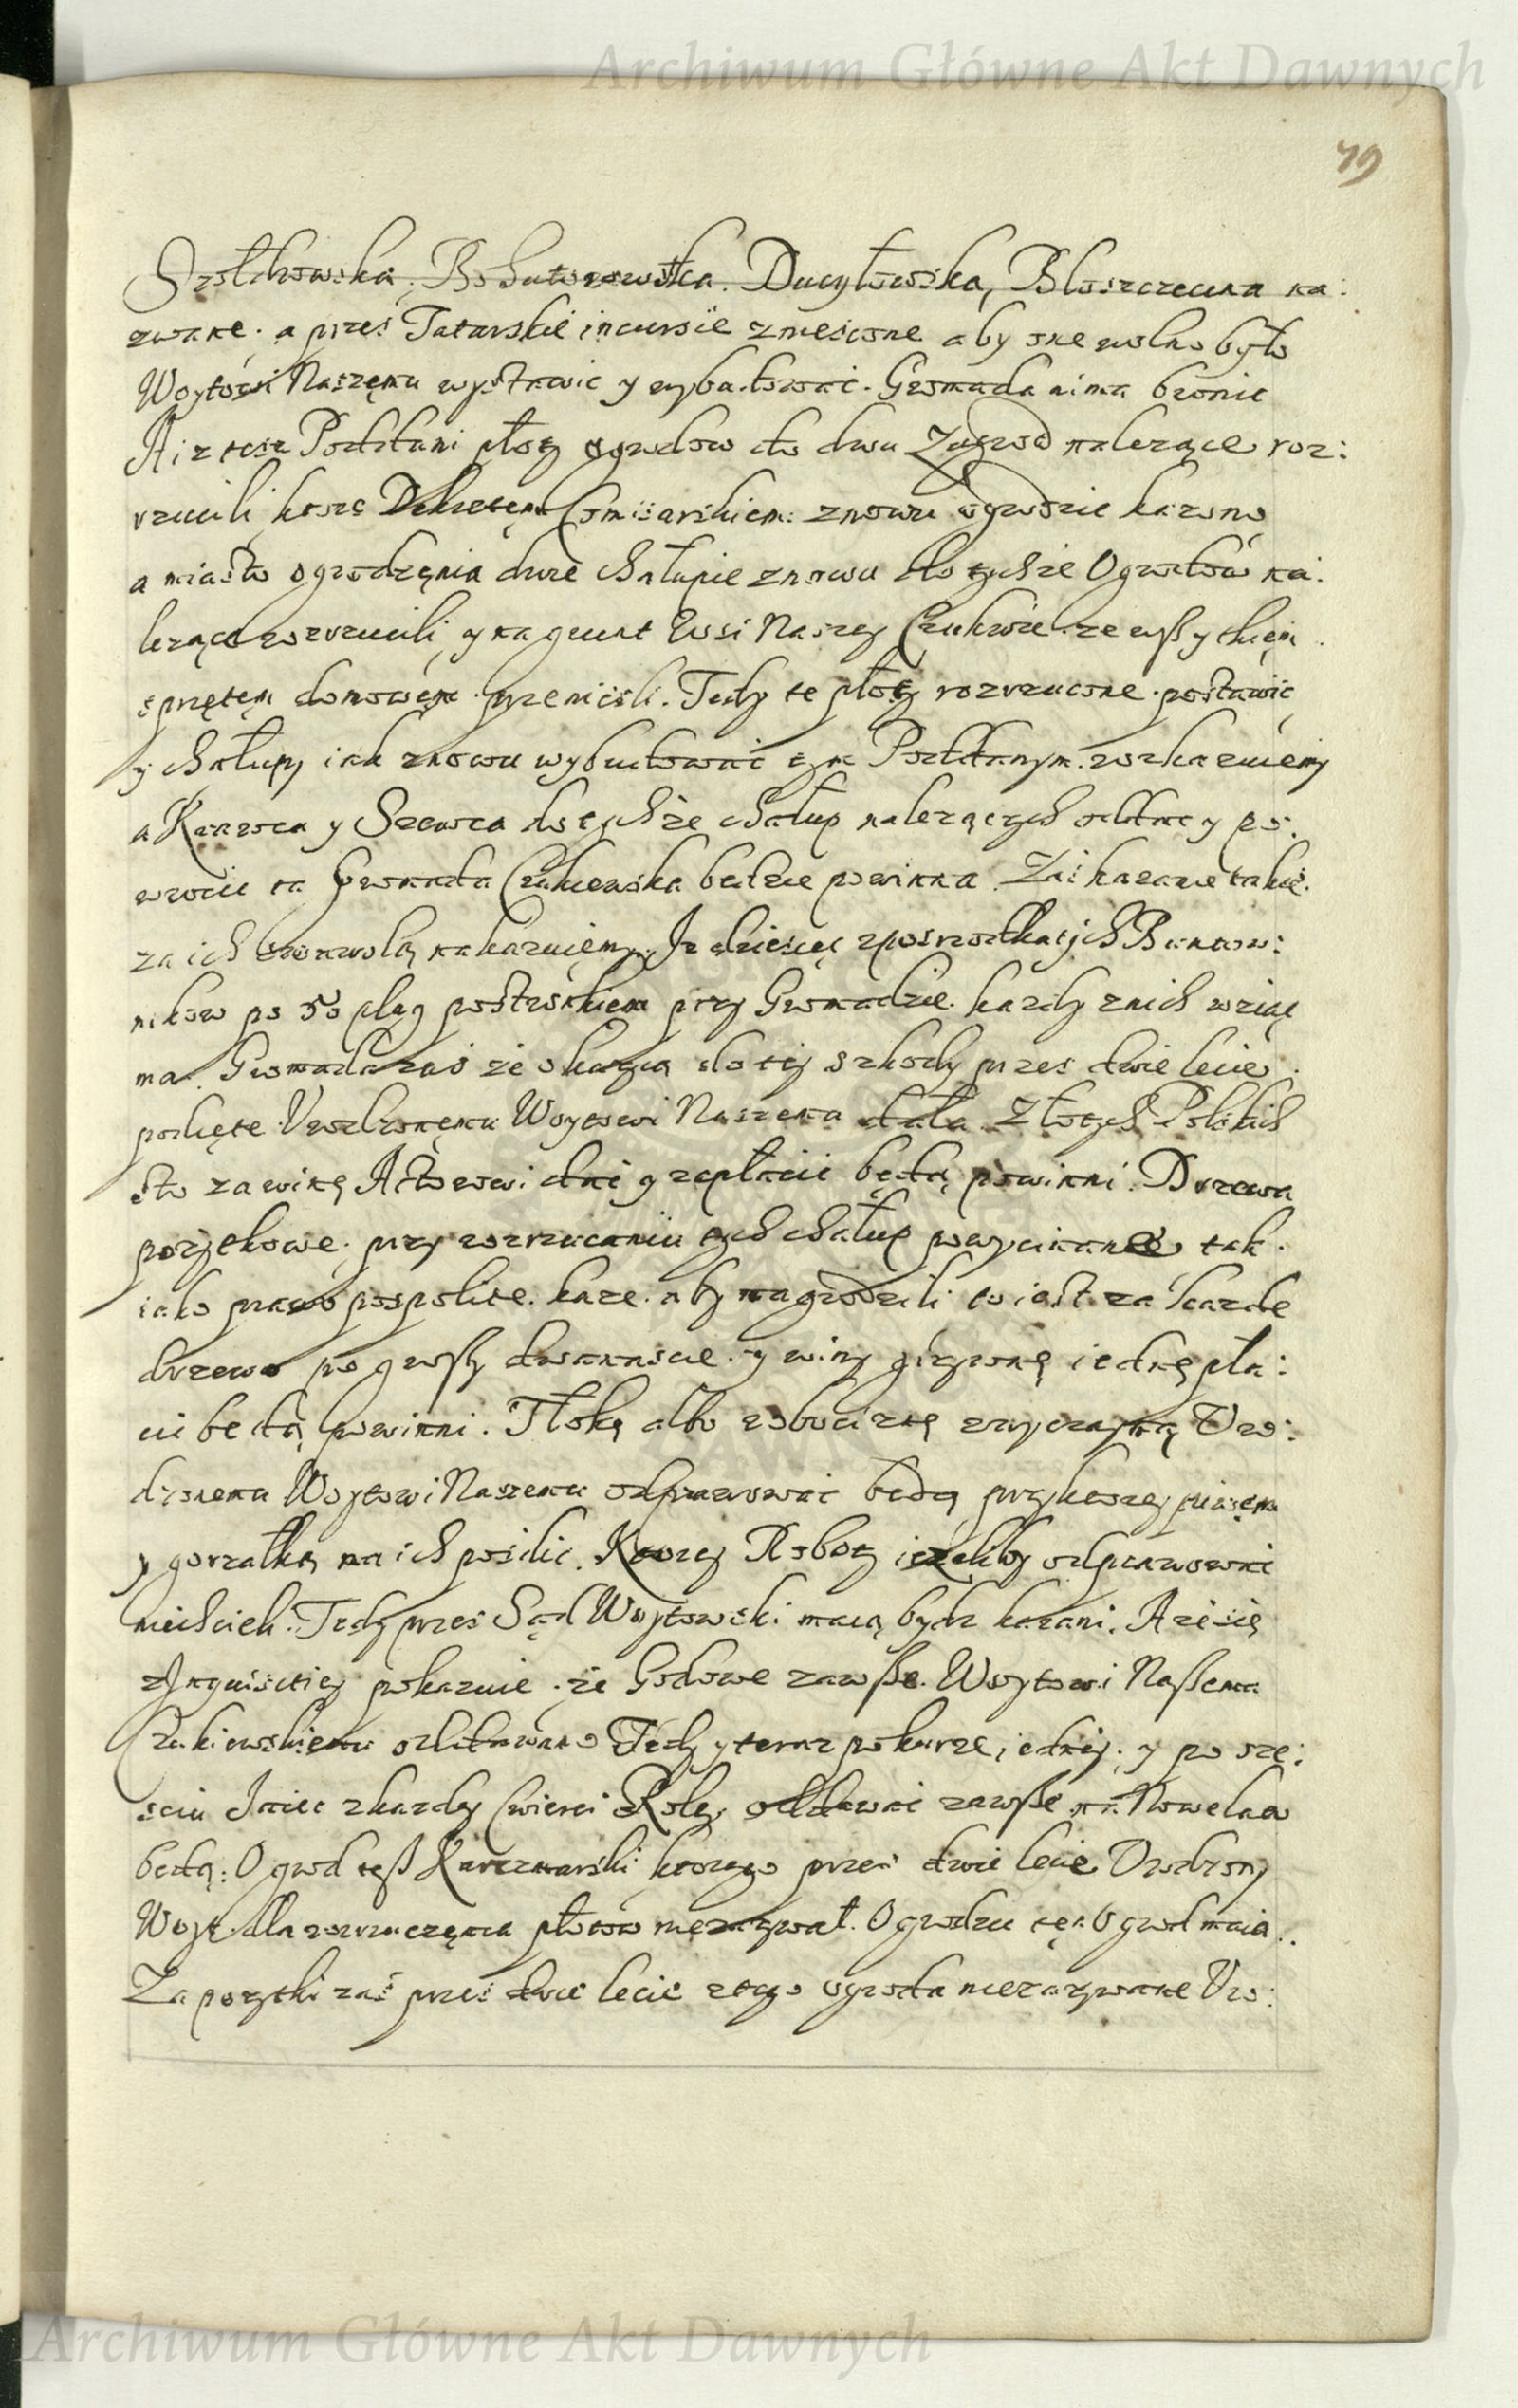 Archiwum Główne Akt Dawnych
79
Szołdrowska, Bohutorowska, Ducyłowska, Błoszczecina na:
zwane. a przes Tatarskie incursie zniesione aby one wolno było
Woytowi Naszęmu wystawic y wybudować. Gromada nima bronic
A iż cisz Poddani płoty ogrodow do dwu Zagrod nalezące roz:
rzucili, ktore Dekretęm Comisarskiem: znowu ogrodzic kazono
a miasto ogrodzęnia dwie chałupie znowu do tychże Ogrodow na:
lezące rozrzucili, y na grunt Wsi Naszey Czukwie ze wßytkięm
sprzętęm domowęm przeniesli. Tedy te płoty rozrzucone postawic
y chałupy iak znowu wybudować tym Poddanym rozkazuiemy
a Krawca y Szewca do tychże chałup nalezących oddac y po:
wrocic ta Gromada Czukiewska bedzie powinna. Zaś karanie takie
za ich swawolą nakazuięmy. Iz dziesięc zposrzodka tych Buntow:
nikow po 50 plag postronkiem przy Gromadzie kazdy znich wziąc
ma. Gromada zaś że okazyą do tej szkody przes dwie lecie
podięte Urodzonęmu Woytowi Naszemu dała Złotych Polskich
sto za winę Aktorowi dac y zapłacic będą powinni. Drzewa
pozytkowe przy rozrzucaniu tych chałup powycinane tak
iako prawo pospolite kaze aby nagrodzili to iest za kazde
drzewo po groszy dwanascie y winy grzywnę iednę pła:
cic bedą powinni. Tłokę albo robociznę zwyczayną Uro:
dzonemu Woytowi Naszemu odprawować bedą przy ktorey piwem
y gorzałką ma ich posilic. Ktorey Roboty iezeliby odprawować
niechcieli. Tedy przes Sąd Woytowski maią bydz karani. A ze się
z Inquisitiey pokazuie że Godowe zawße Woytowi Naßemu
Czukiewskiemu oddawano Tedy y teraz po kurze iedney y po sze:
sciu Iaiec z kazdey Cwierci Roley oddawać zawße na Nowe lato
bedą. Ogrod teß Karczmarski ktorego przes dwie lecie Urodzony
Woyt dla rozrzuczęnia płotow niezazywał. Ogrodzic tęn Ogrod maią.
Za pozytki zaś przes dwie lecie z tego ogroda niezazywane Uro:
Archiwum Główne Akt Dawnych